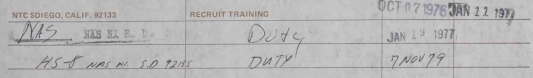 NTC SDIEGO, CALIF. 92133 RECRUIT TRAINING OCT 07 1976 JAN 11 1977
NAS NAS NI S. D Duty JAN 19 1977
HS-8 NAS NI. S.D 92135 DUTY 7 NOV 79